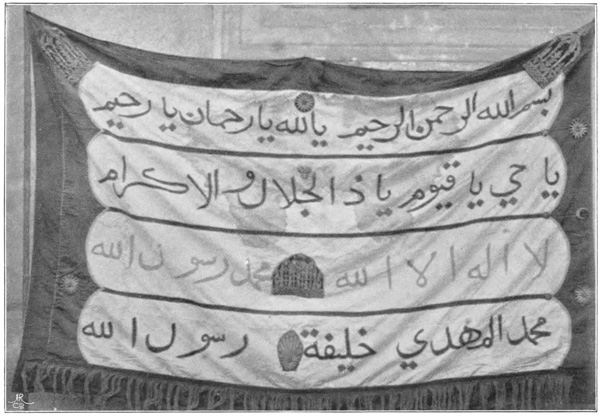 بسم الله الرحمن الرحيم يا الله يا رحمان يا رحيم
يا حي يا قيوم يا ذا الجلال والاكرام
لا اله الا الله محمد رسول الله
محمد المهدي خليفة رسول الله